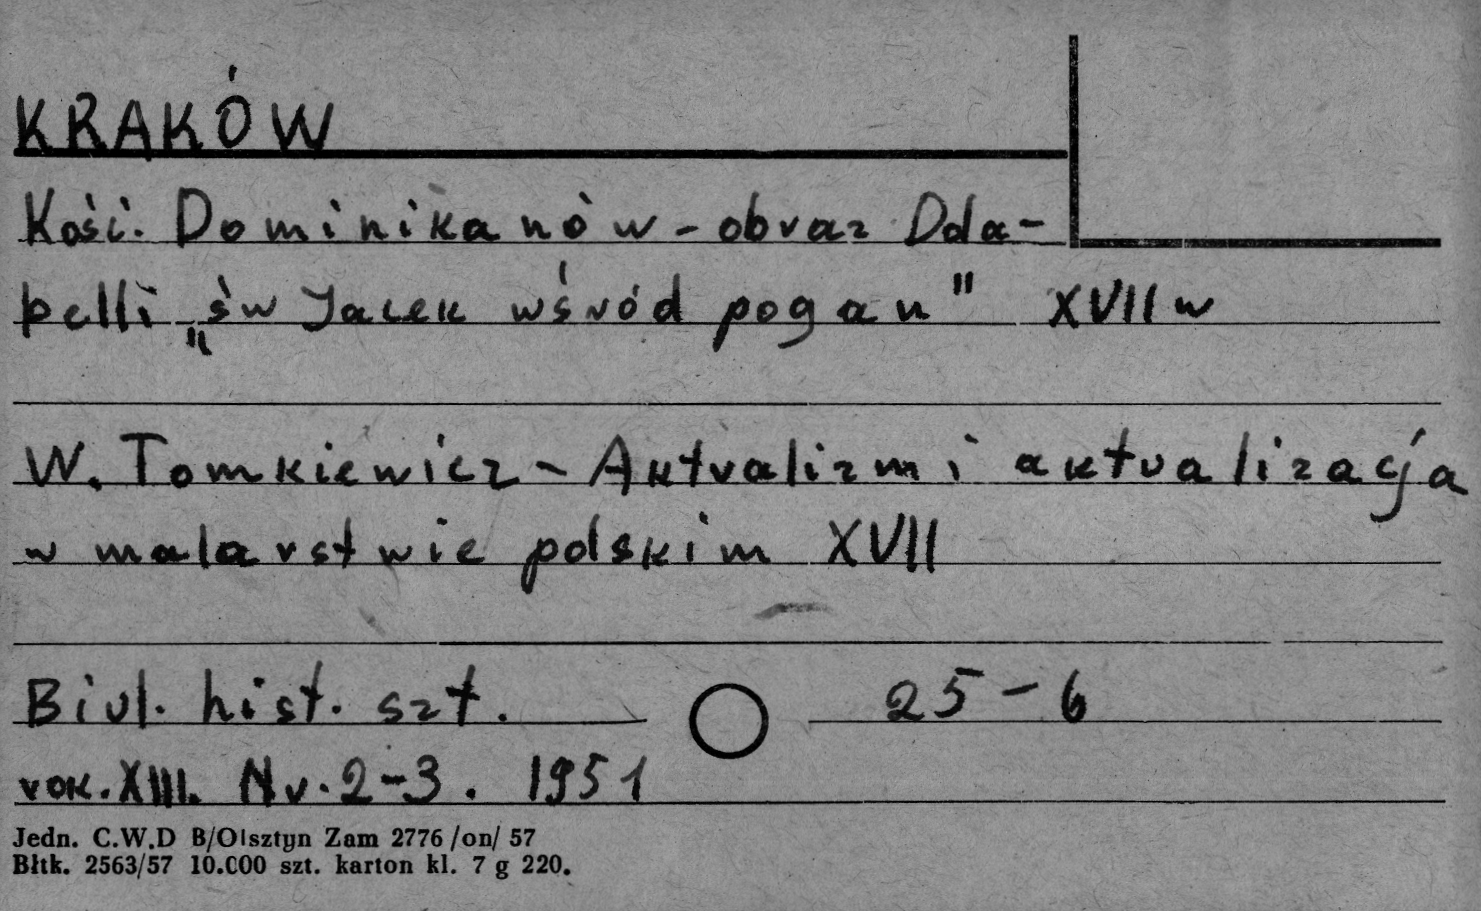 KRAKÓW
Kośc. Dominikanów - obraz Dola-
belli „św Jacek wśród pogan" XVII w
W. Tomkiewicz - Aktualizm i aktualizacja
w malarstwie polskim XVII
Biul. hist. szt. 25-6
rok. XIII. Nr. 2-3. 1951
Jedn. C.W.D B/Olsztyn Zam 2776 /on/ 57
Błtk. 2563/57 10.000 szt. karton kl. 7 g 220.